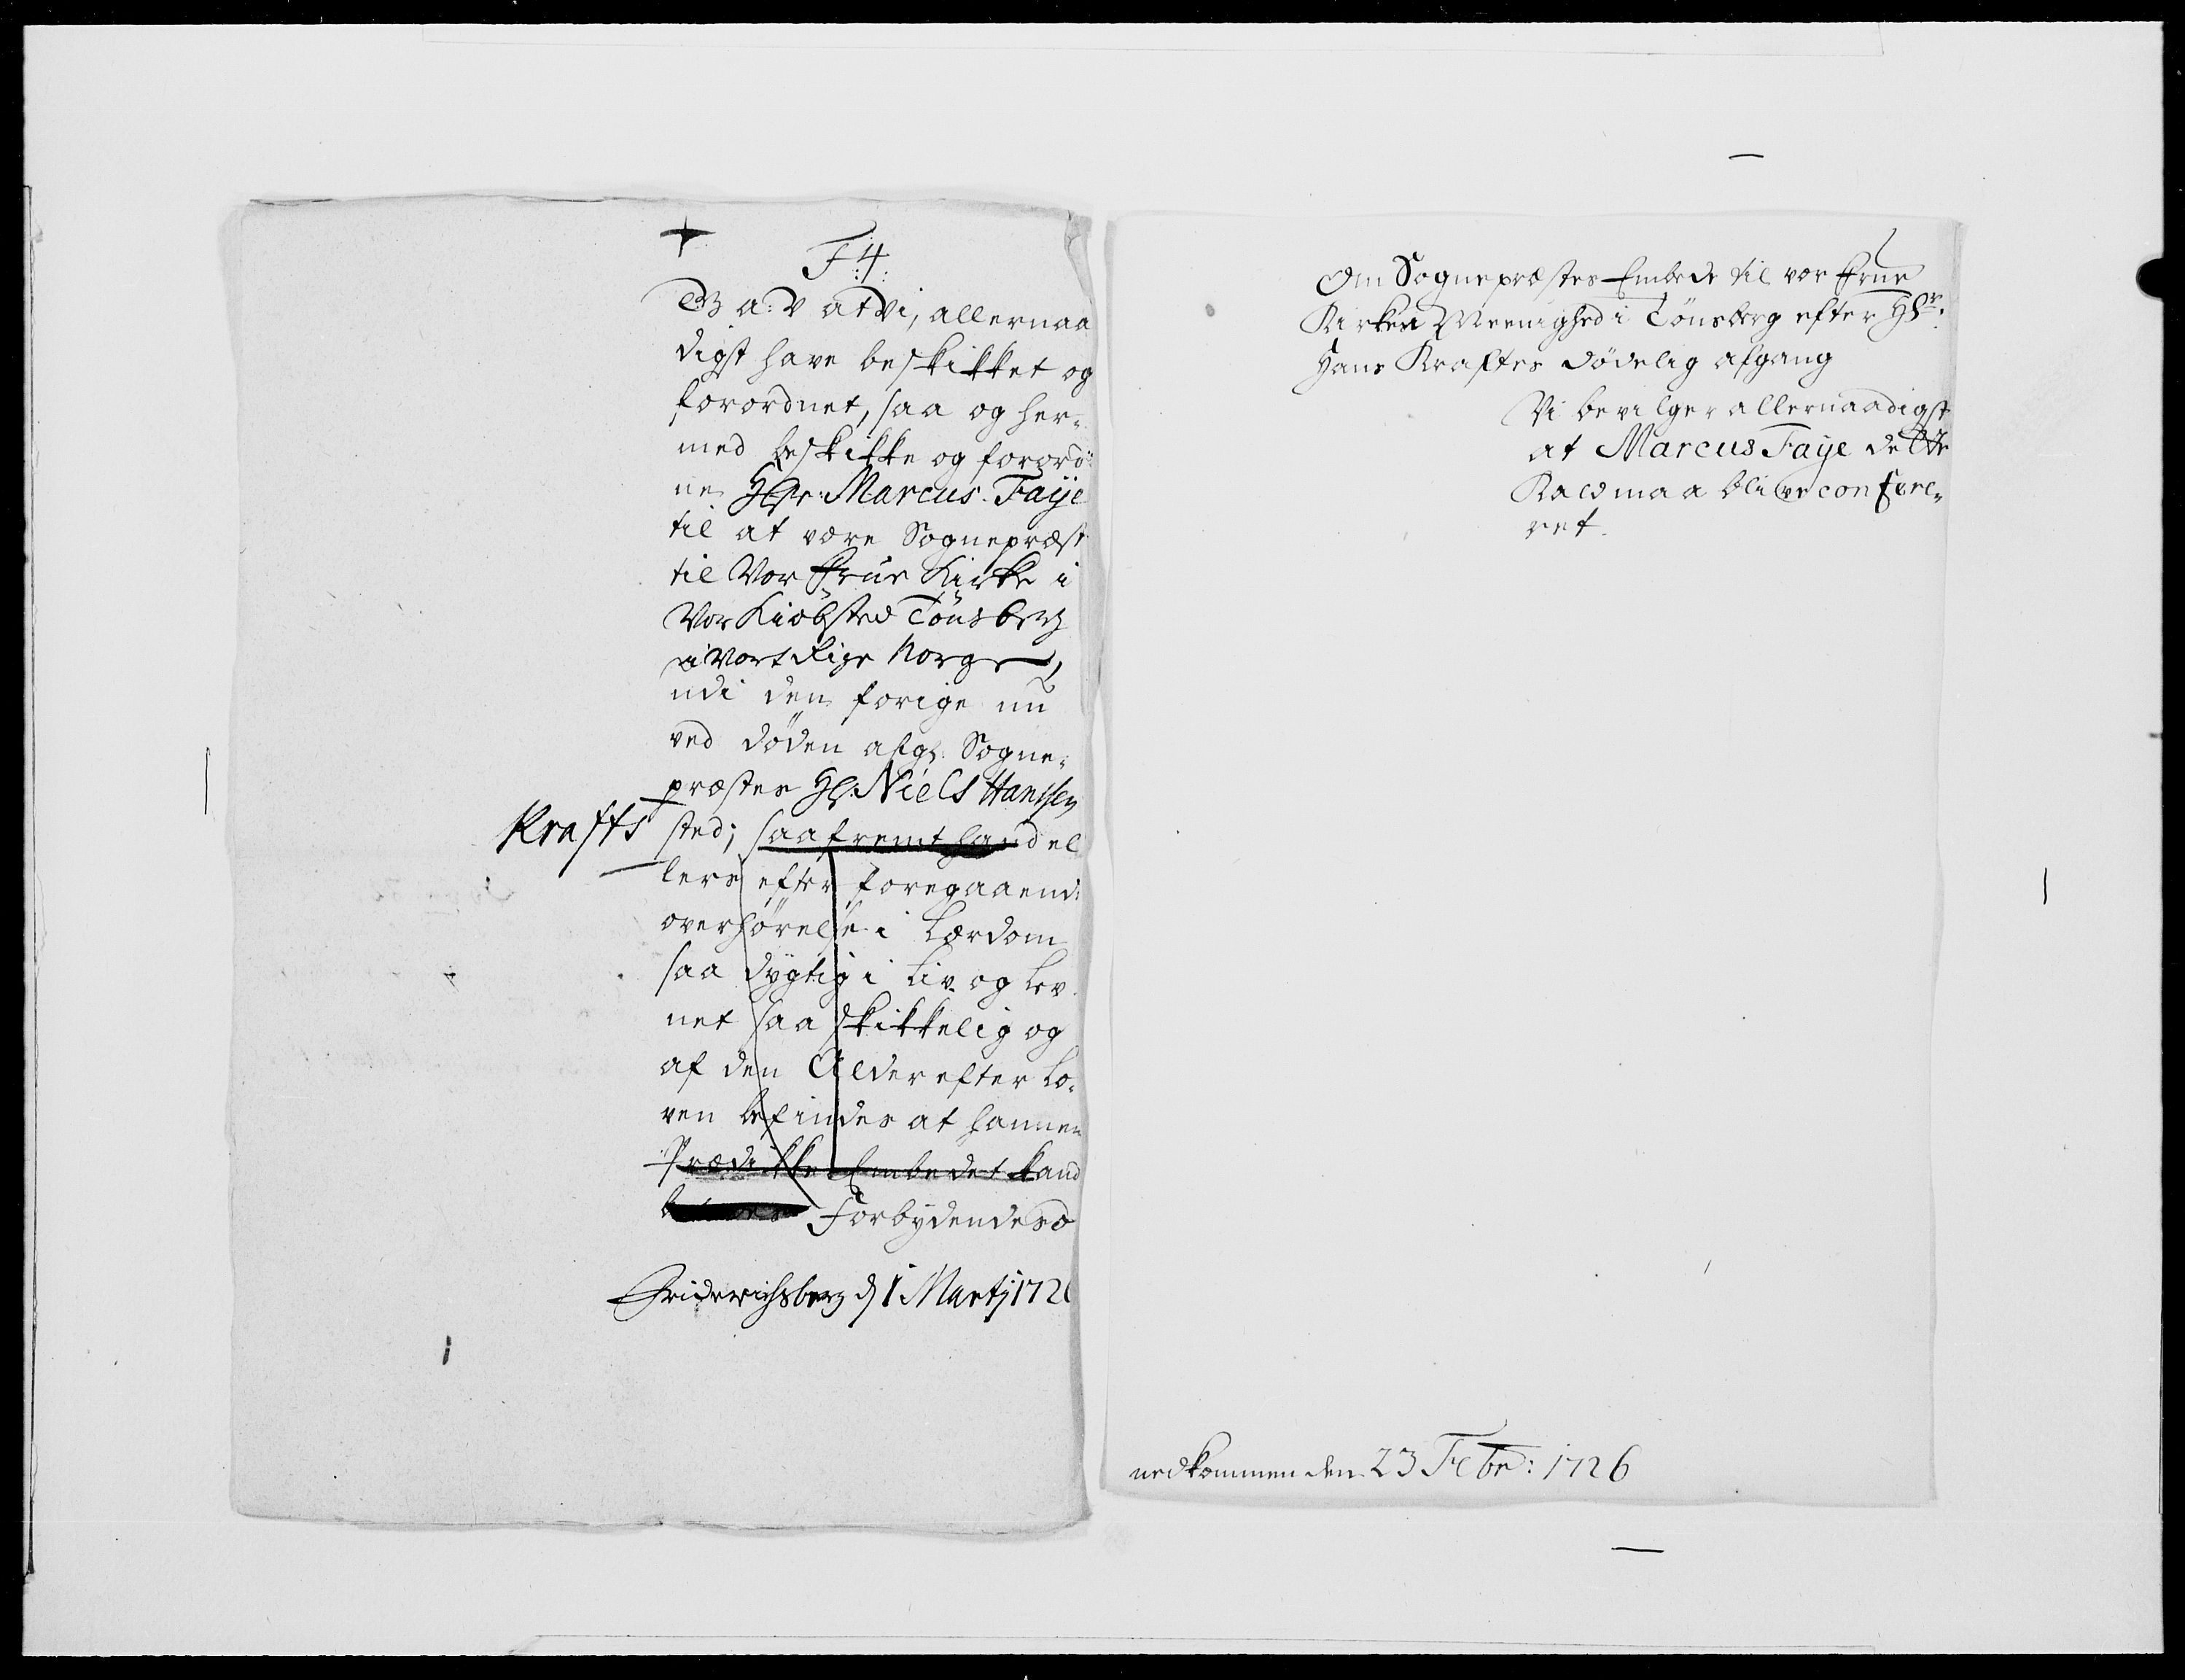 F4:
G a: v at Vi, allernaa
digst have beskikket og
forordnet, saa og her-
med beskikke og forord-
ne Hr: Marcus Faije
til at være Sognepræst
til Vor Frue Kirke i
Vor Kiöbsted Tönsberg
i Vort Rige Norge,
udi den forige nu
ved döden afg: Sogne-
præstes Hr: Niels Hanssen
Krafts sted; saafremt hand el
lers efter foregaaende
overhörelse i Lærdom
saa dygtig i Liv og Lev
net saa skikkelig og
af den Alder efter Lo-
ven befindes at hannem
Prædikke Embedet kand
Forbydendes
Friderichsberg d 1 Martj 172
Om Sognepræstes Embede til vor Frue
Kirkes Meenighed i Tönsberg efter Hr:
Hans Kraftes dödelig afgang
Vi bevilger allernaadigst
at Marcus Faije dette
Kald maa blive confere-
ret.
nedkommen den 23 Febr: 1726